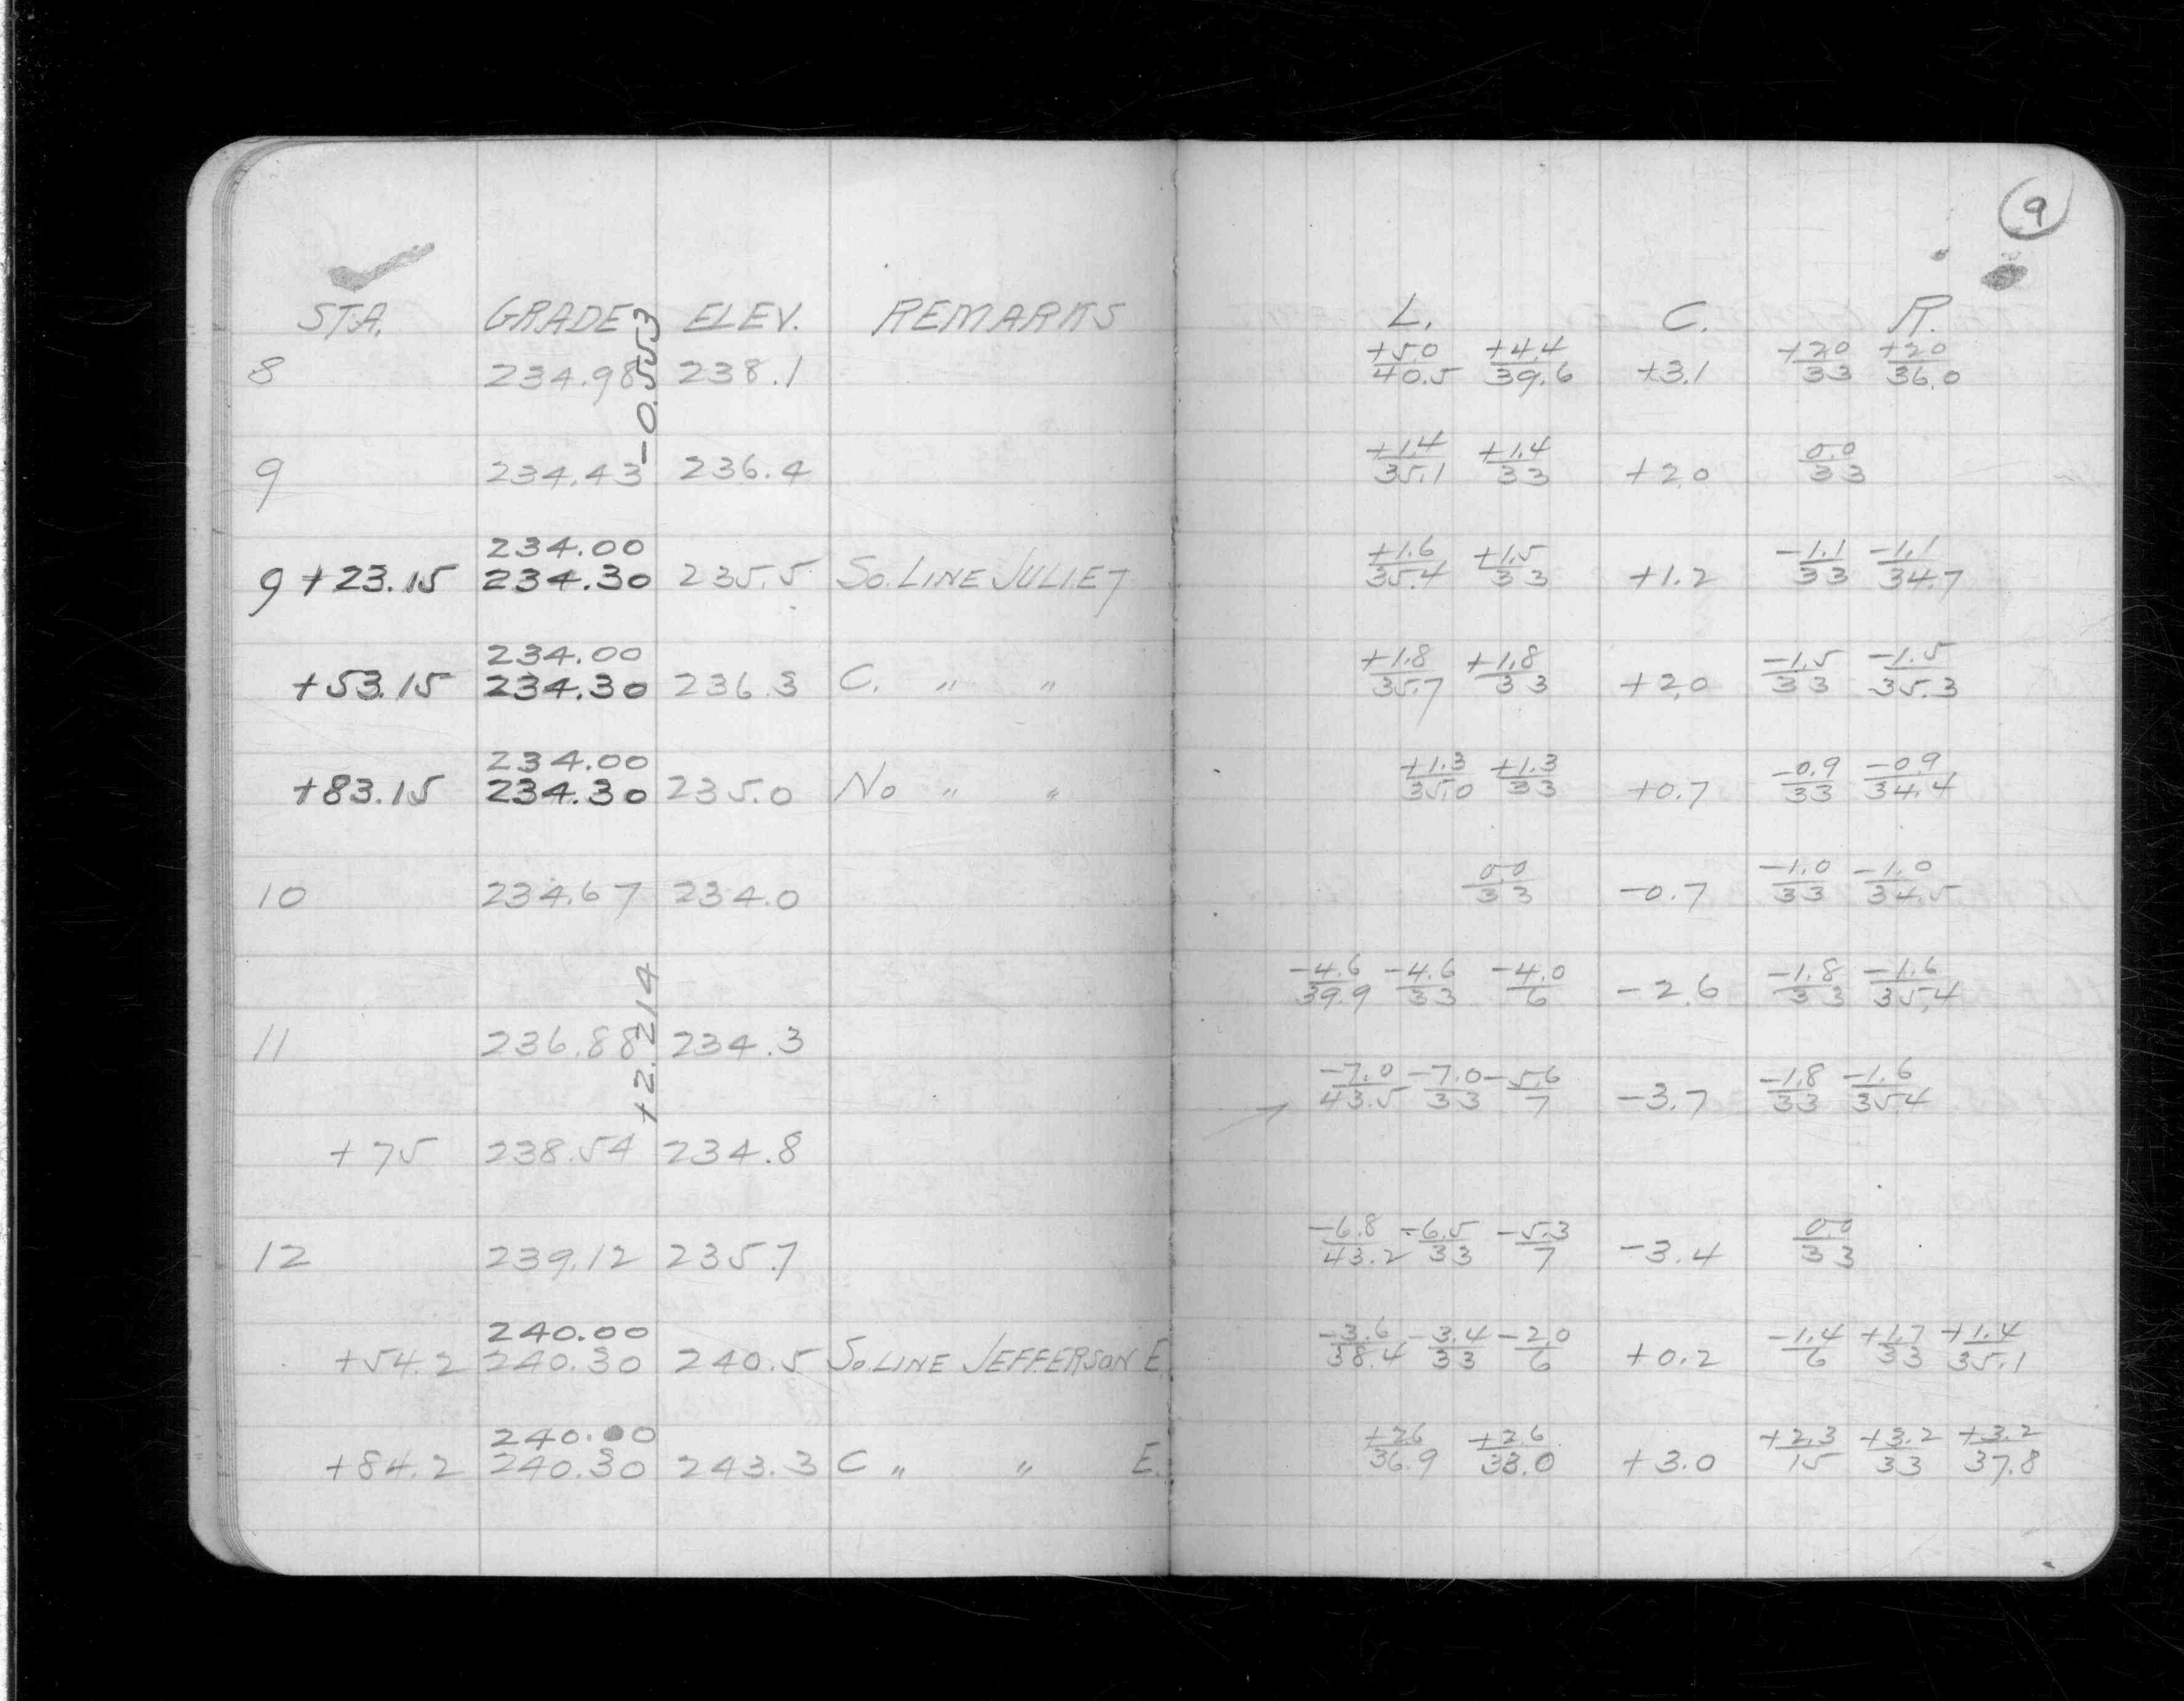 9
STA. GRADE ELEV. REMARKS L. C. R.
-0.553
8 234.98 238.1 +5.0/40.5 +4.4/39.6 +3.1 +2.0/33 +2.0/36.0
9 234.43 236.4 +1.4/35.1 +1.4/33 +2.0 0.0/33
234.00
9 +23.15 234.30 235.5 So. LINE JULIET +1.6/35.4 +1.5/33 +1.2 -1.1/33 -1.1/34.7
234.00
+53.15 234.30 236.3 C. " " +1.8/35.7 +1.8/33 +2.0 -1.5/33 -1.5/35.3
234.00
+83.15 234.30 235.0 No " " +1.3/35.0 +1.3/33 +0.7 -0.9/33 -0.9/34.4
10 234.67 234.0 0.0/33 -0.7 -1.0/33 -1.0/34.5
+2.214
-4.6/39.9 -4.6/33 -4.0/6 -2.6 -1.8/33 -1.6/35.4
11 236.88 234.3
-7.0/43.5 -7.0/33 -5.6/7 -3.7 -1.8/33 -1.6/35.4
+75 238.54 234.8
12 239.12 235.7 -6.8/43.2 -6.5/33 -5.3/7 -3.4 0.0/33
240.00
+54.2 240.30 240.5 So. LINE JEFFERSON E. -3.6/38.4 -3.4/33 -2.0/6 +0.2 -1.4/6 +1.7/33 +1.4/35.1
240.00
+84.2 240.30 243.3 C " " E. +2.6/36.9 +2.6/33.0 +3.0 +2.3/15 +3.2/33 +3.2/37.8